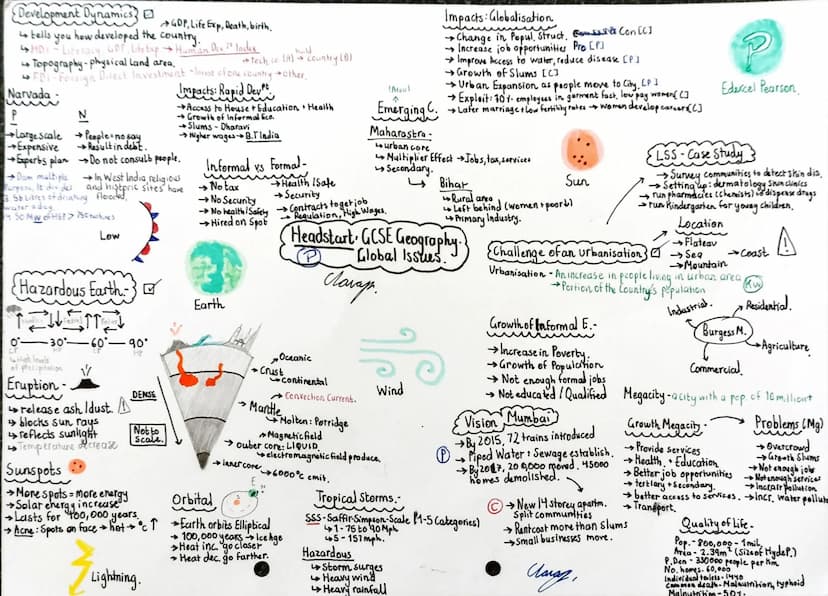 Development Dynamics
→ GDP, Life Exp, Death, birth.
↳ tells you how developed the country.
Human Dev Index
→ Topography - physical Land area.
→ FDI - Foreign Direct Investment
Narvada -
P
N
→ Large scale
→ Expensive
→ Experts plan
→ People = no say
→ Result in debt.
→ Do not consult people.
→ Dam multiple
→ In West India, religious
and historic sites have
flooded.
Low
Impacts: Rapid Devpt.
→ Access to House + Education + Health
→ Growth of Informal Eco.
→ Slums - Dharavi
→ Higher wages → B.T India
Informal vs Formal -
→ No tax
→ No Security
→ No health/Safety
→ Hired on Spot
→ Health/Safe
→ Security
→ Contracts to get job
→ Regulation, High Wages.
Emerging C.
Maharastra -
↳ urban core
→ Multiplier Effect → Jobs, tax, services
→ Secondary.
Bihar
↳ Rural area
↳ Left behind (women + poor b)
↳ Primary Industry.
Impacts: Globalisation
→ Change in Popul. Struct.
Con [C]
→ Increase job opportunities
Pro [P]
→ Improve access to water, reduce disease [P]
→ Growth of Slums [C]
→ Urban Expansion, as people move to City. [P]
→ Exploit: 70% employees in garment fact, low pay women [C]
→ Later marriage + low fertility rates → women develop careers [C]
P
Edexcel Pearson.
Sun
LSS - Case Study
→ Survey communities to detect skin dis.
→ Setting up: dermatology skin clinics
→ run pharmacies (chemists) to dispense drugs
→ run Kindergarten for young children.
Headstart: GCSE Geography.
P
Global Issues.
Challenge of an Urbanisation
Location
→ Plateau
→ Sea
→ Mountain
→ Coast
Urbanisation - An increase in people living in urban area
→ Portion of the Country's population
KW
Industrial.
Residential.
Burgess M.
Agriculture.
Commercial.
Megacity - a city with a pop of 10 million +
Hazardous Earth -
0° 30° 60° 90°
Earth
Eruption -
↳ release ash/dust.
↳ blocks sun rays
↳ reflects sunlight
↳ Temperature decrease
DENSE
Not to
Scale.
Oceanic
Crust
continental
Convection Current.
Mantle
Molten: Porridge
Magnetic field
outer core: LIQUID
electromagnetic field produce.
inner core
6000°C emit.
Wind
Sunspots
→ More spots = more energy
→ Solar energy increase
→ Lasts for 400,000 years
→ Acne: Spots on face → hot → °C ↑
Lightning.
Orbital
E
→ Earth orbits Elliptical
→ 100,000 years → Ice Age
→ Heat inc. go closer
→ Heat dec. go farther.
Tropical Storms -
SSS - Saffir-Simpson-Scale (1-5 Categories)
↳ 1 - 75 to 90 Mph
↳ 5 - 157 mph.
Hazardous
↳ Storm surges
↳ Heavy wind
↳ Heavy rainfall
Growth of Informal E. -
→ Increase in Poverty.
→ Growth of Population
→ Not enough formal jobs
→ Not educated / Qualified
Vision Mumbai
P
→ By 2015, 72 trains introduced
→ Piped Water + Sewage establish.
→ By 2017, 200,000 moved. 45000
homes demolished.
C
→ New 14 storey apartm.
Split communities
→ Rent cost more than Slums
→ Small businesses move.
Growth Megacity
→ Provide services
→ Health. + Education
→ Better job opportunities
→ tertiary + Secondary.
→ better access to services.
→ Transport.
Problems (Mg)
→ Overcrowd
→ Growth Slums
→ Not enough job
→ Not enough services
→ Incr. air Pollution
→ Incr. water pollution
Quality of Life.
Pop. - 800,000 - 1 mil.
Area - 2.39m² (size of Hyde P.)
P. Den - 330000 people per km
No. homes. 60,000
Individual toilets - 1440
Common death - Malnutrition, typhoid
Malnutrition - 50%